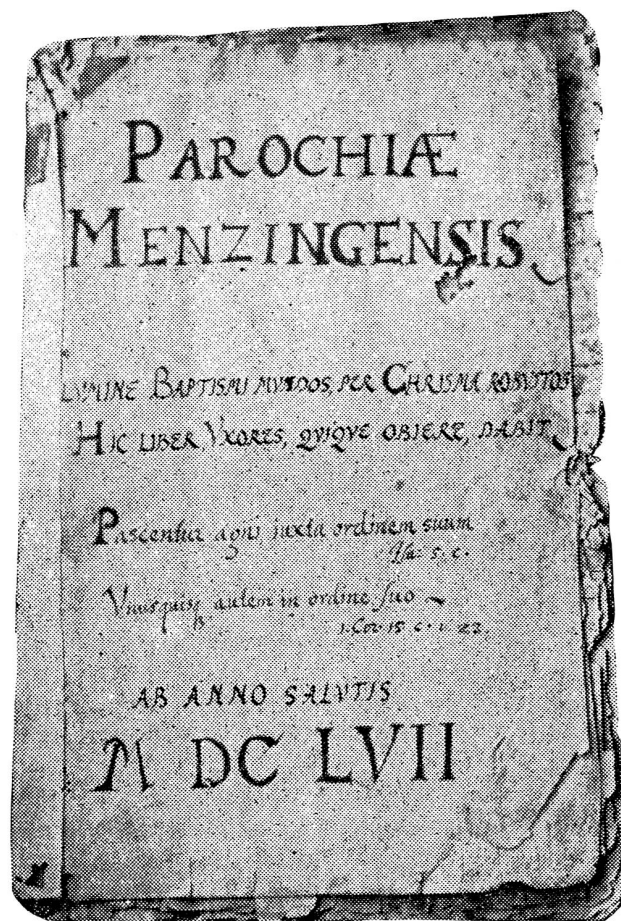 PAROCHIÆ
MENZINGENSIS
LUMINE BAPTISMI MUNDOS, PER CHRISMA ROBUSTOS
HIC LIBER, VXORES, QVIQVE OBIERE, DABIT
Pascentur agni juxta ordinem suum
Isa: 5. c.
Vnusquisq autem in ordine suo
1. Cor. 15. c. v. 23.
AB ANNO SALVTIS
M DC LVII